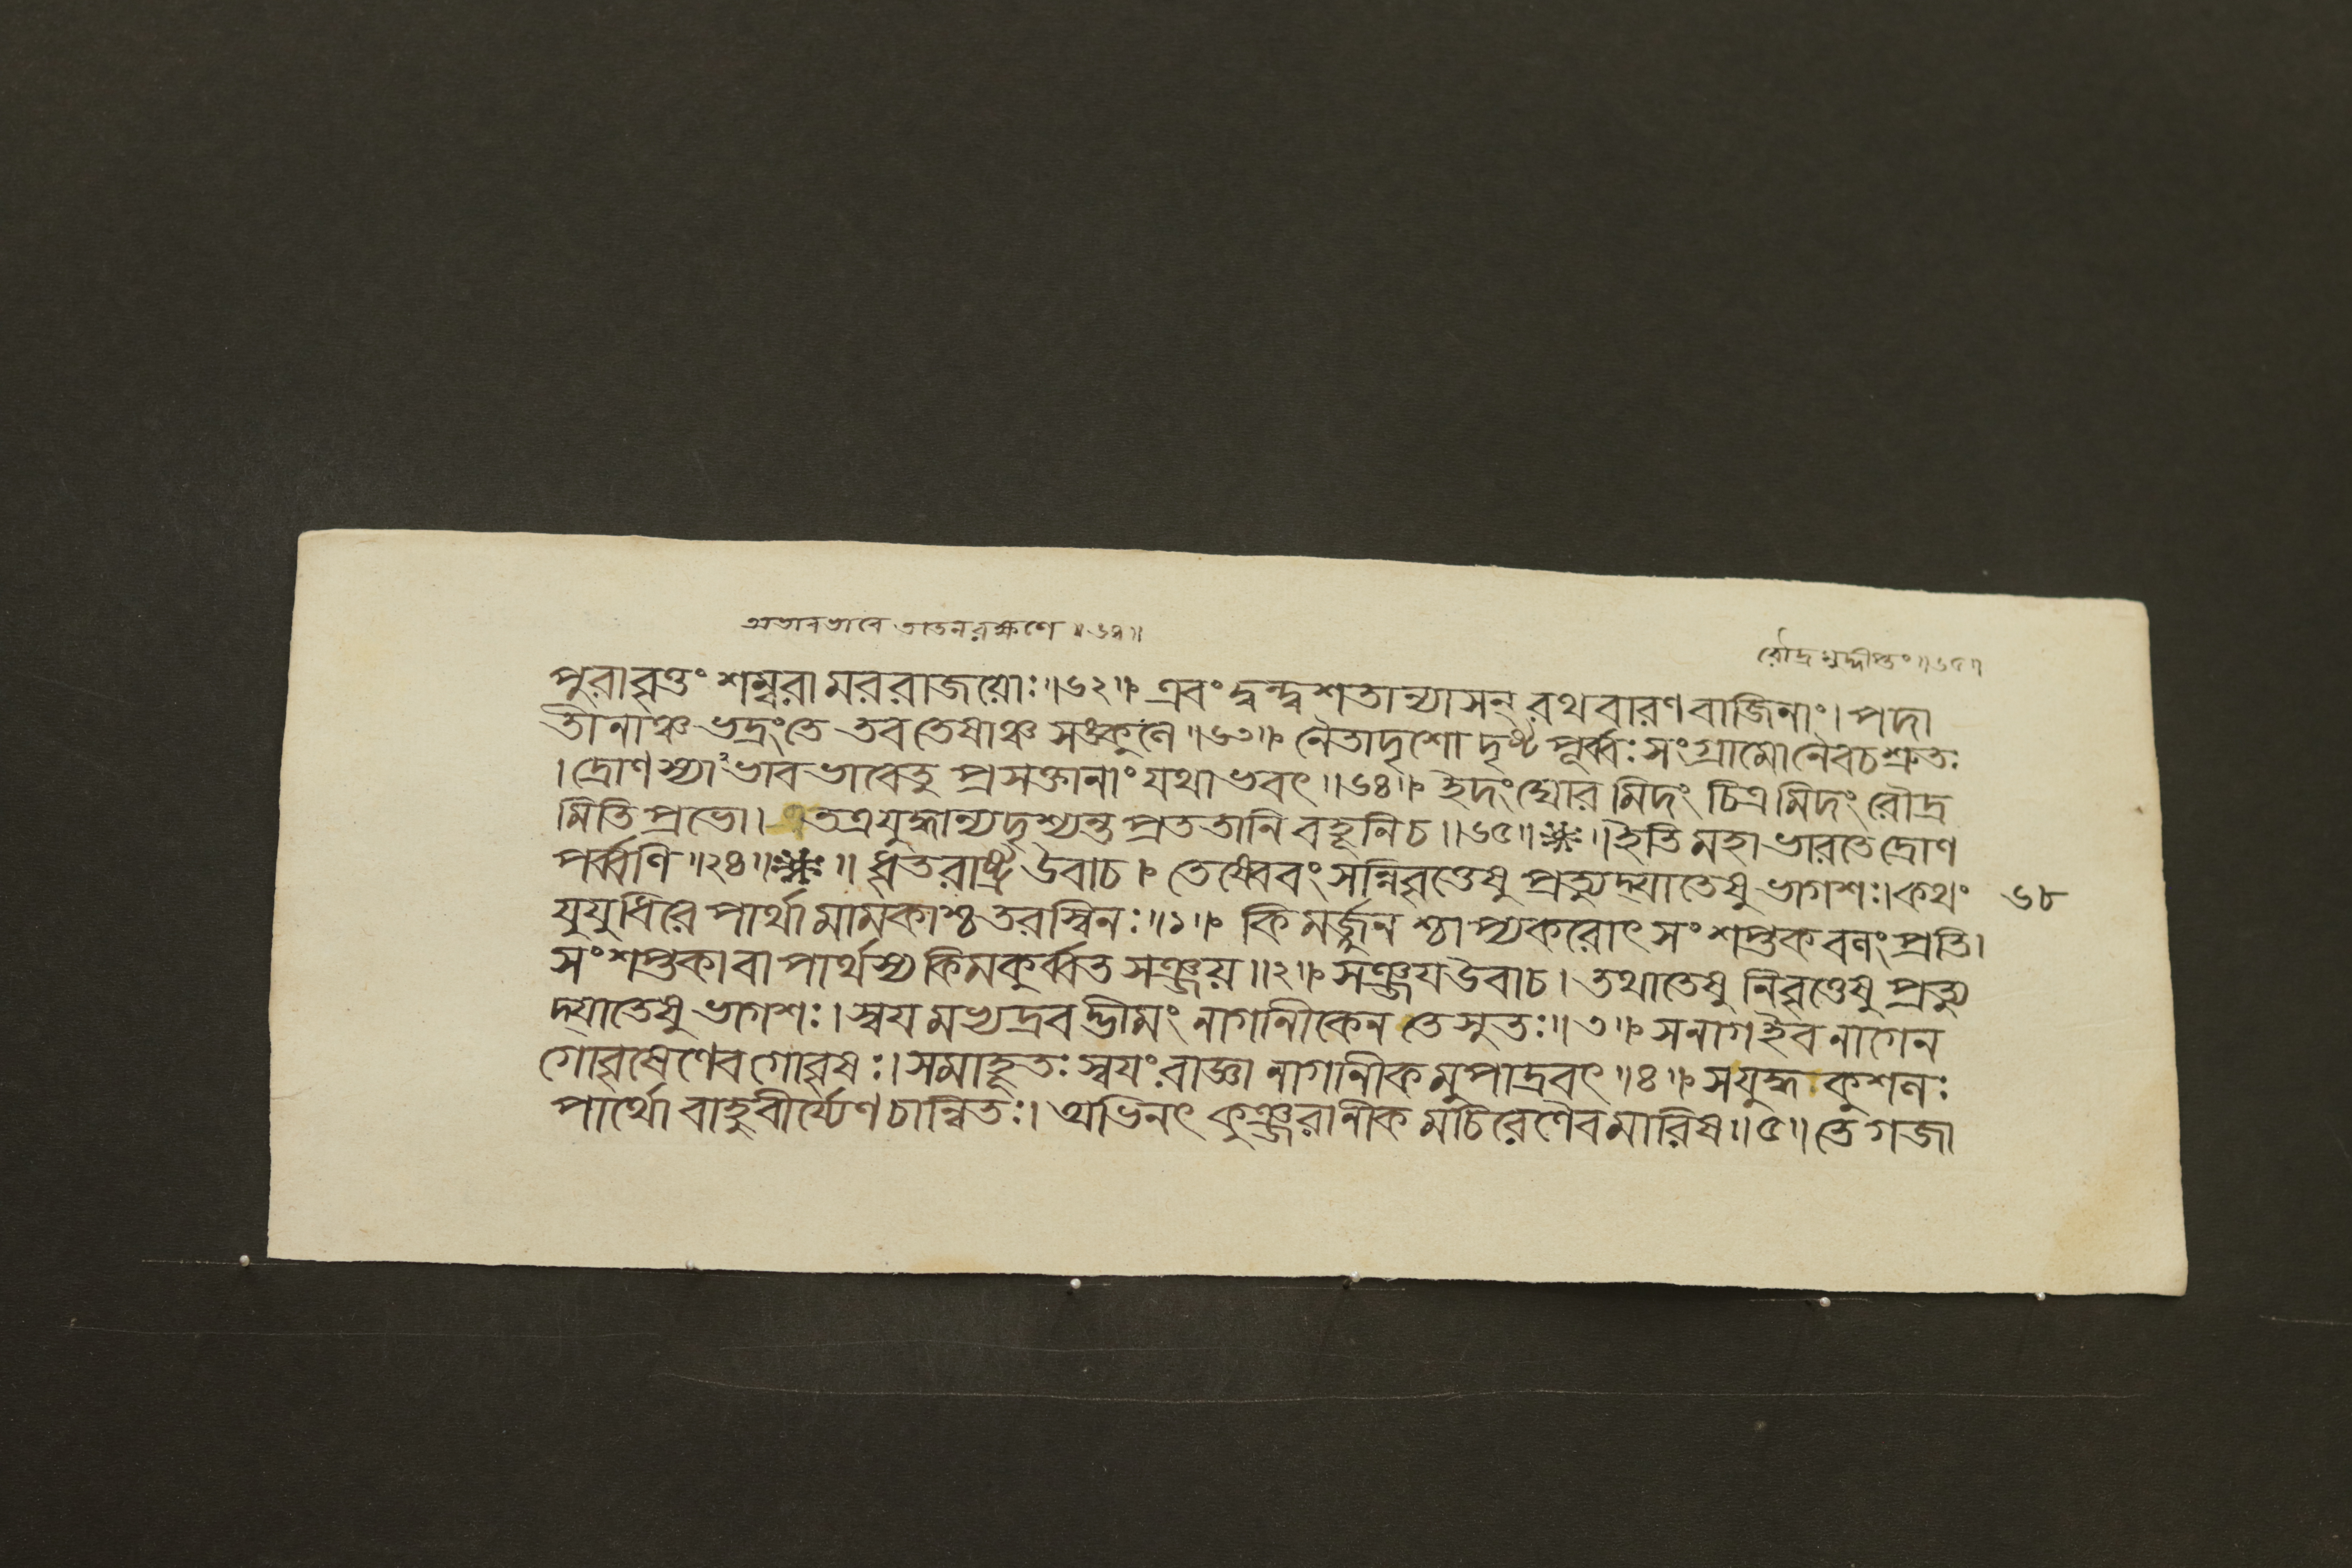 অভাবভাবে তাতনরক্ষণে ॥৬৪॥
রৌদ্রমুদ্দীপ্তং॥৬৫॥
পুরাবৃত্তং শম্বরামররাজয়োঃ॥৬২॥ এবং দ্বন্দ্বশতান্যাসন্ রথবারণবাজিনাং। পদা
তীনাঞ্চ ভদ্রংতে তব তেষাঞ্চ সঙ্কুলে॥৬৩॥ নৈতাদৃশো দৃষ্টপূর্ব্বঃ সংগ্রামোনৈবচশ্রুতঃ
। দ্রোণস্যাভাবভাবেতু প্রসক্তানাং যথাভবৎ॥৬৪॥ ইদংঘোরমিদং চিত্রমিদং রৌদ্র
মিতি প্রভো। তত্রযুদ্ধান্যদৃশ্যন্ত প্রততানি বহূনিচ॥৬৫॥ ॥ইতি মহাভারতে দ্রোণ
পর্ব্বণি॥২৪॥ ॥ ধৃতরাষ্ট্র উবাচ। তেষ্বেবং সন্নিবৃত্তেষু প্রত্যুদ্যাতেষু ভাগশঃ।কথং
৬৮
যুযুধিরে পার্থা মামকাশ্চ তরস্বিনঃ॥১॥ কিমর্জ্জুনশ্চাপ্যকরোৎ সংশপ্তকবলং প্রতি।
সংশপ্তকা বা পার্থস্য কিমকুর্ব্বত সঞ্জয়॥২॥ সঞ্জয উবাচ। তথাতেষু নিবৃত্তেষু প্রত্যু
দ্যাতেষু ভাগশঃ। স্বযমভ্যদ্রবদ্ভীমং নাগানীকেন তে সুতঃ॥৩॥ সনাগইব নাগেন
গোবৃষেণেব গোবৃষঃ। সমাহূতঃ স্বযং রাজ্ঞা নাগানীকমুপাদ্রবৎ॥৪॥ সযুদ্ধকুশলঃ
পার্থো বাহুবীর্য্যেণ চান্বিতঃ। অভিনৎ কুঞ্জরানীকমচিরেণৈব মারিষ॥৫॥ তে গজা